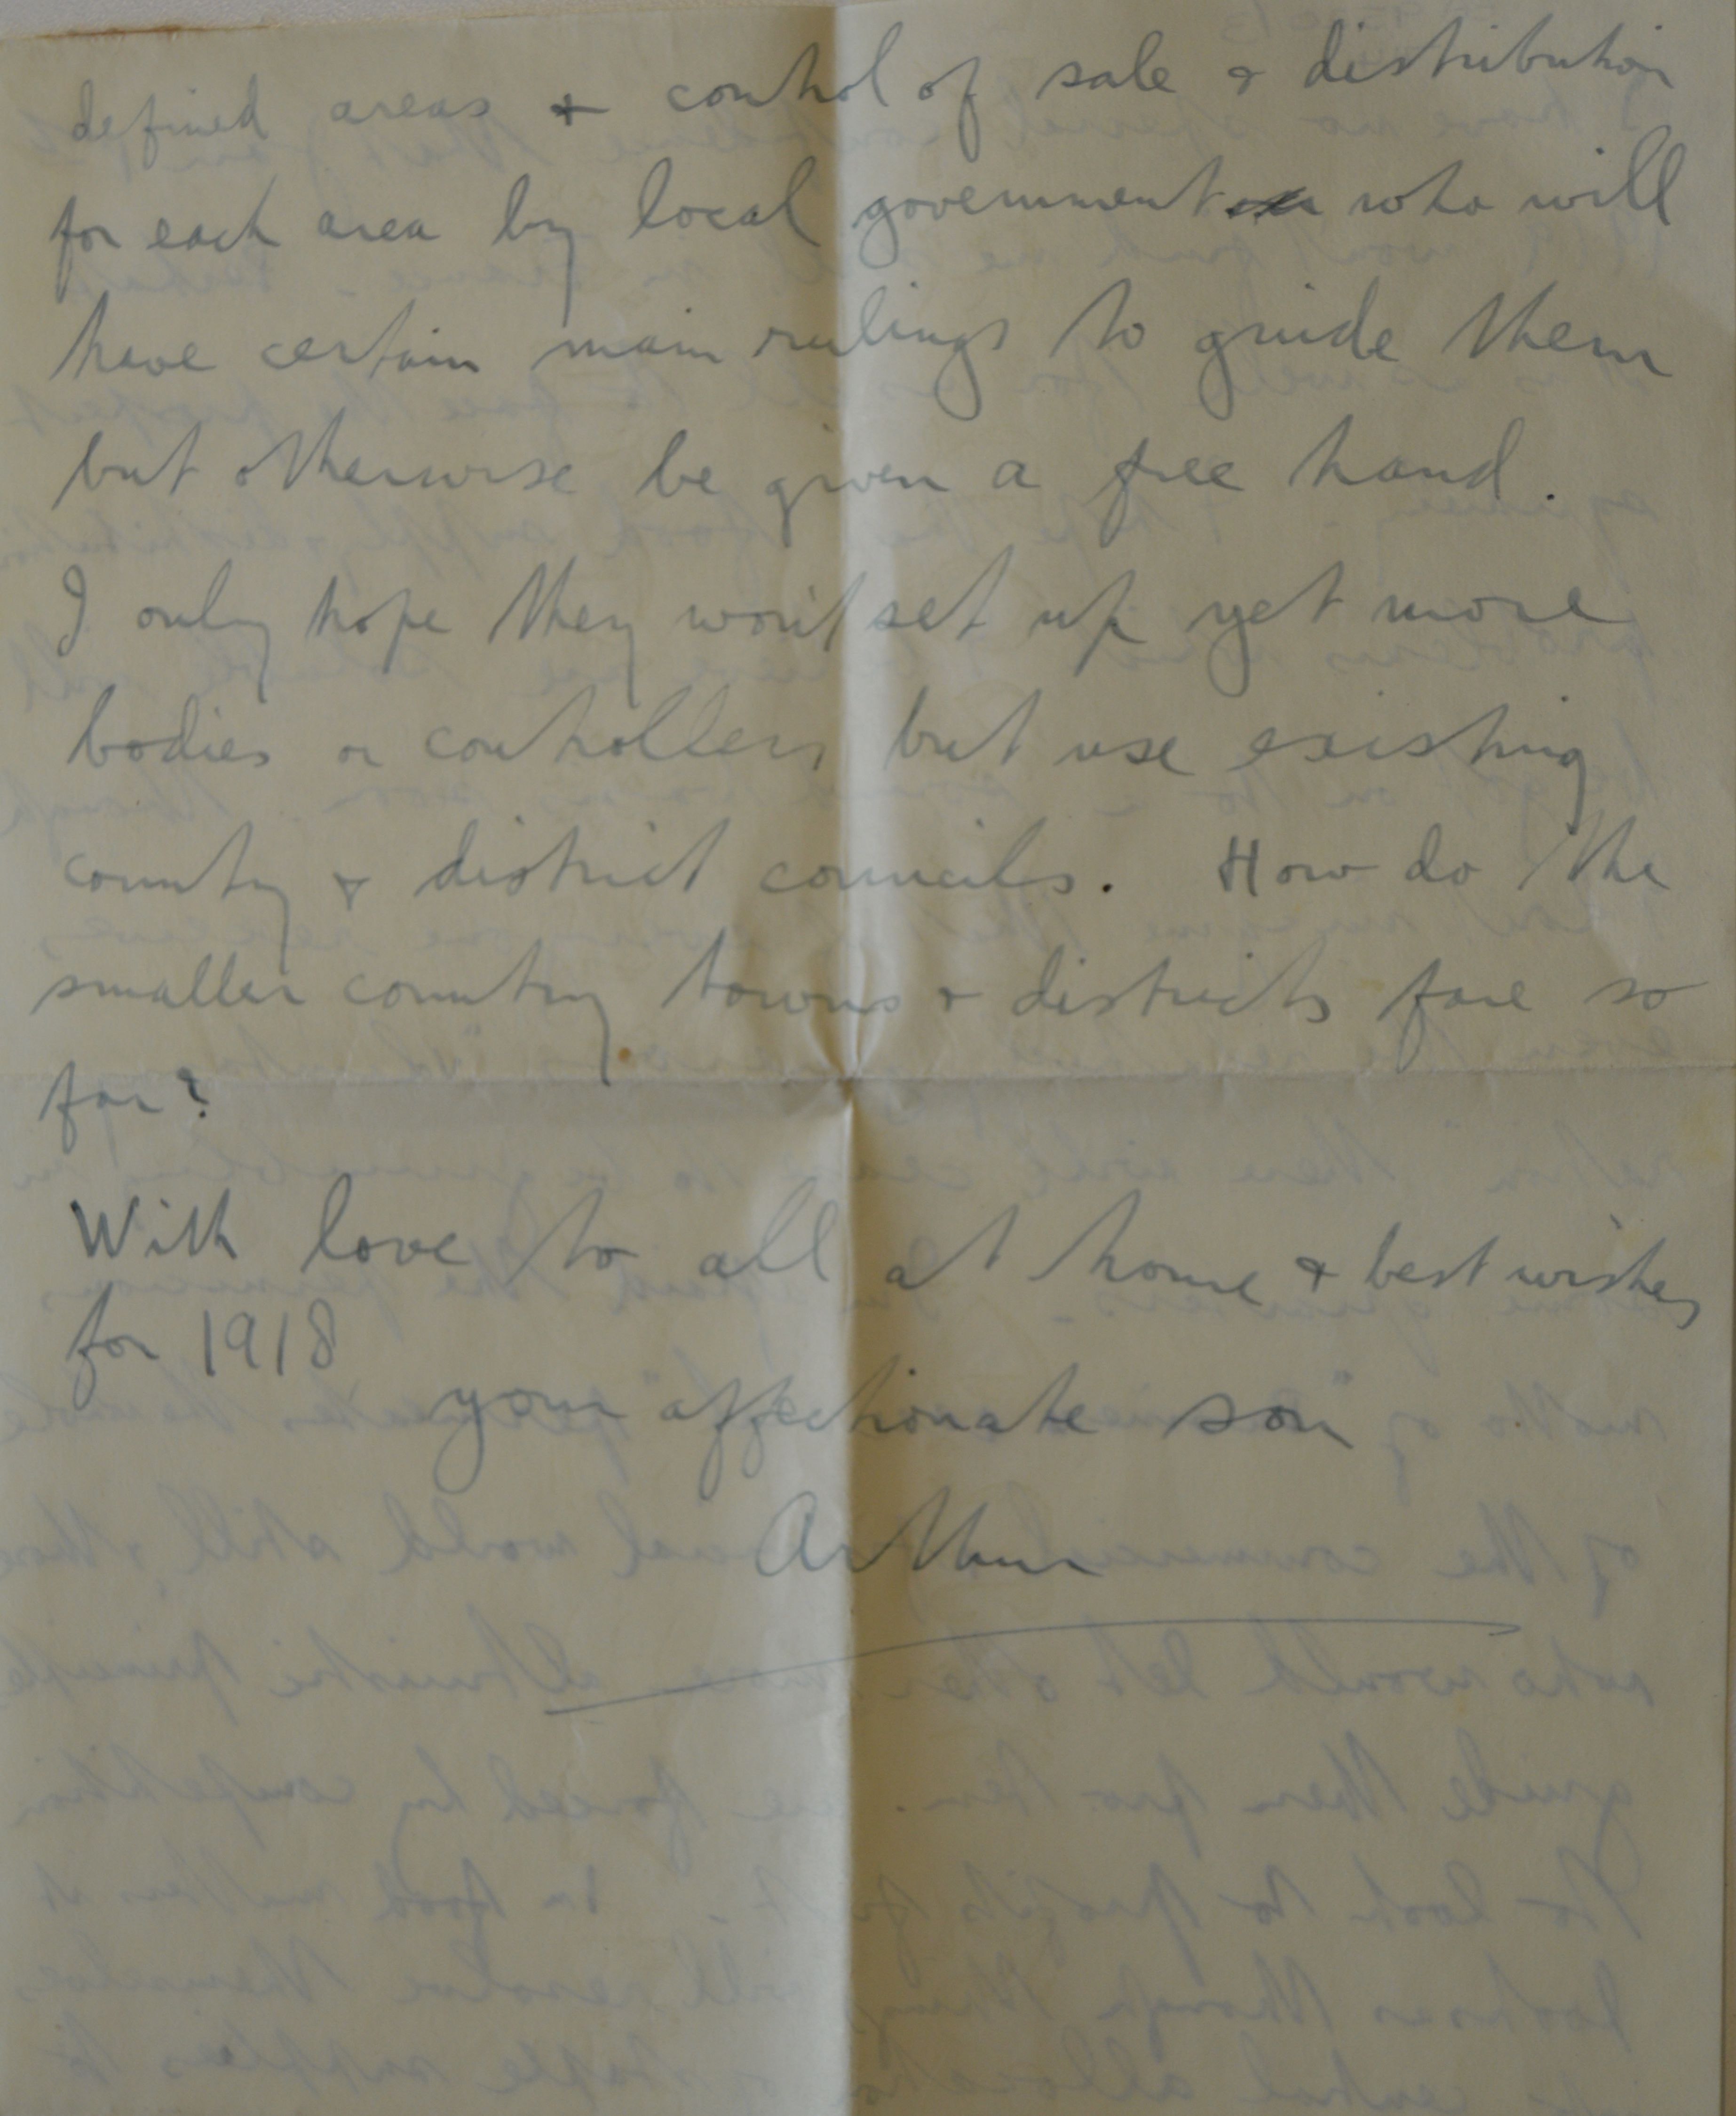 defined areas + control of sale & distribution
for each area by local government who will
have certain main rulings to guide them
but otherwise be given a free hand.
I only hope they won't set up yet more
bodies or controllers but use existing
county & district councils. How do the
smaller country towns & districts fare so
far?
With love to all at home & best wishes
for 1918
your affectionate son
Arthur